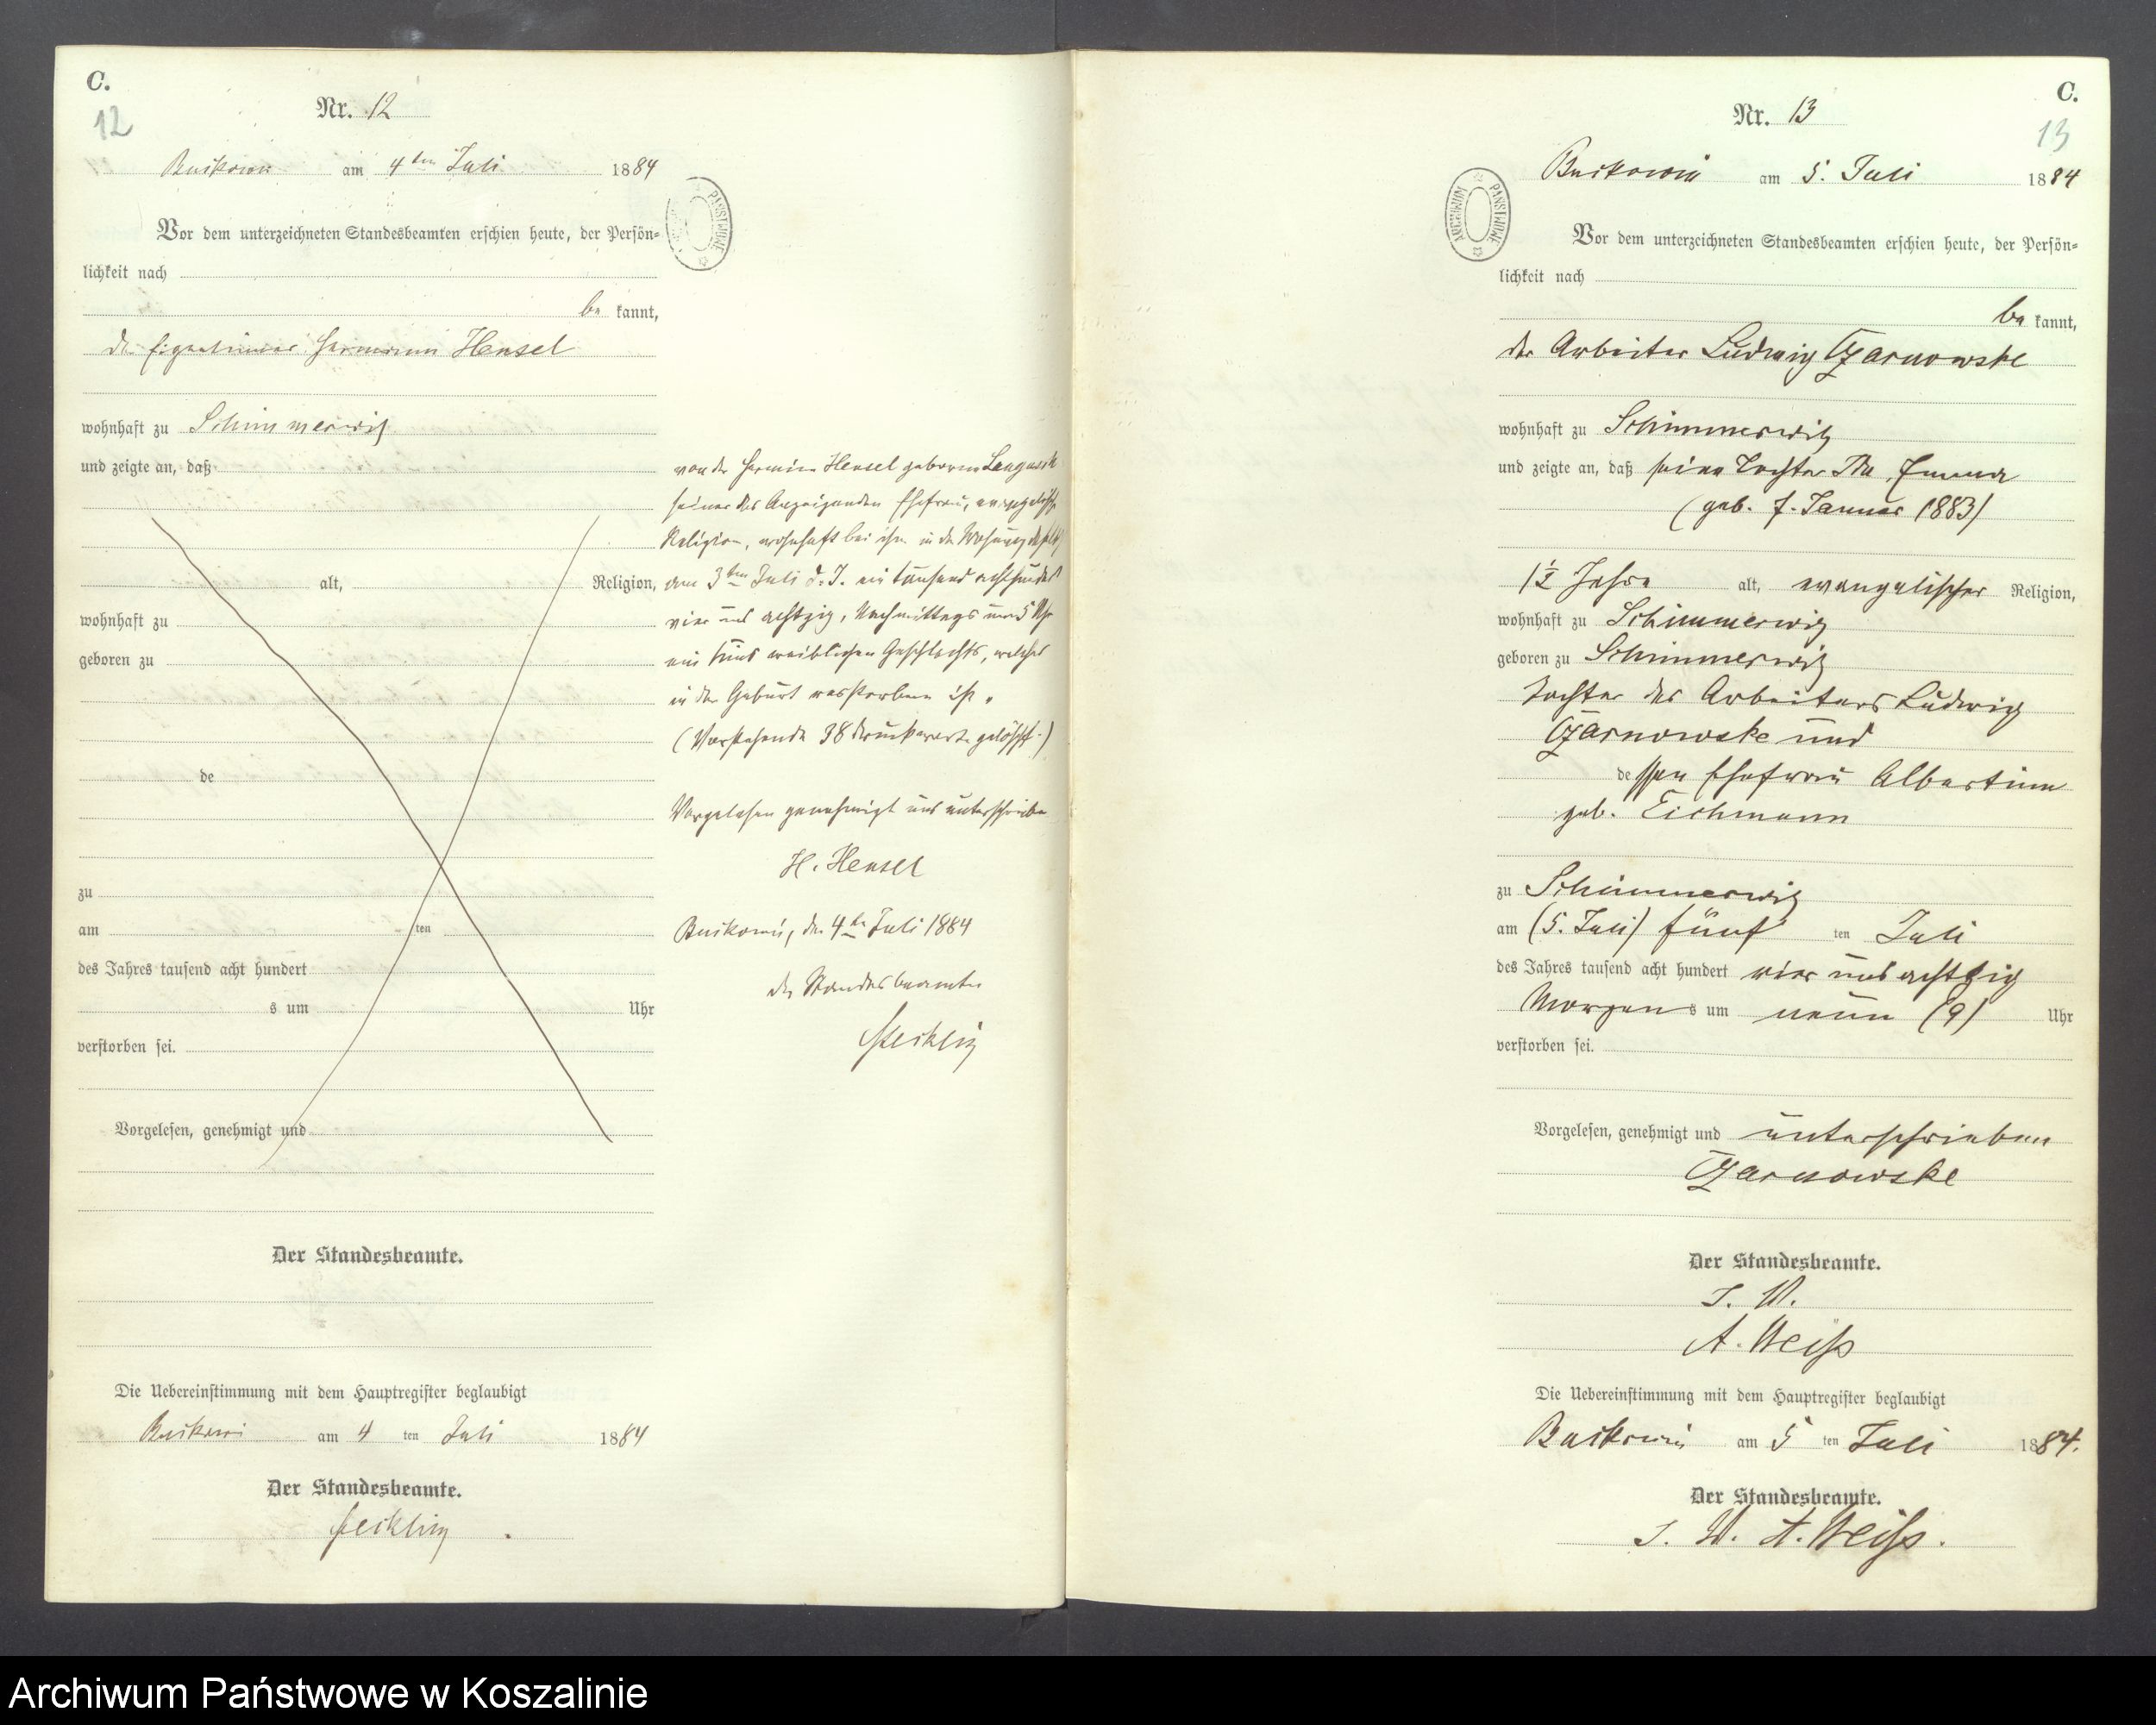 C.
12
Nr. 12
Buckowin am 4ten Juli 1884
ARCHIWUM PAŃSTWOWE
Vor dem unterzeichneten Standesbeamten erschien heute, der Persön-
lichkeit nach
be kannt,
der Eigenthümer Hermann Hensel
wohnhaft zu Schimmerwitz
und zeigte an, daß
alt, Religion,
wohnhaft zu
geboren zu
de
zu
am ten
des Jahres tausend acht hundert
s um Uhr
verstorben sei.
Vorgelesen, genehmigt und
Der Standesbeamte.
Die Uebereinstimmung mit dem Hauptregister beglaubigt
Buckowin am 4 ten Juli 1884
Der Standesbeamte.
von der Hermine Hensel geborene
seiner des Anzeigenden Ehefrau, evangelischer
Religion, wohnhaft bei ihm in der Wohnung
am 3ten Juli d. J. ein tausend achthundert
vier und achtzig, Nachmittags um 5 Uhr
ein Kind weiblichen Geschlechts, welches
in der Geburt verstorben ist.
(Vorstehende 38 Druckworte gelöscht.)
Vorgelesen genehmigt und unterschrieben
H. Hensel
Buckowin, den 4ten Juli 1884
der Standesbeamte
C.
13
Nr. 13
Buckowin am 5. Juli 1884
ARCHIWUM PAŃSTWOWE
Vor dem unterzeichneten Standesbeamten erschien heute, der Persön-
lichkeit nach
be kannt,
der Arbeiter Ludwig Czarnowske
wohnhaft zu Schimmerwitz
und zeigte an, daß seine Tochter Emma
(geb. 7. Januar 1883)
1½ Jahre alt, evangelischer Religion,
wohnhaft zu Schimmerwitz
geboren zu Schimmerwitz
Tochter des Arbeiters Ludwig
Czarnowske und
dessen Ehefrau Albertine
geb. Eichmann
zu Schimmerwitz
am (5. Juli) fünf ten Juli
des Jahres tausend acht hundert vier und achtzig
Morgens um neun (9) Uhr
verstorben sei.
Vorgelesen, genehmigt und unterschrieben
Czarnowske
Der Standesbeamte.
I. V.
A. Weiß
Die Uebereinstimmung mit dem Hauptregister beglaubigt
Buckowin am 5 ten Juli 1884.
Der Standesbeamte.
I. V. A. Weiß.
Archiwum Państwowe w Koszalinie